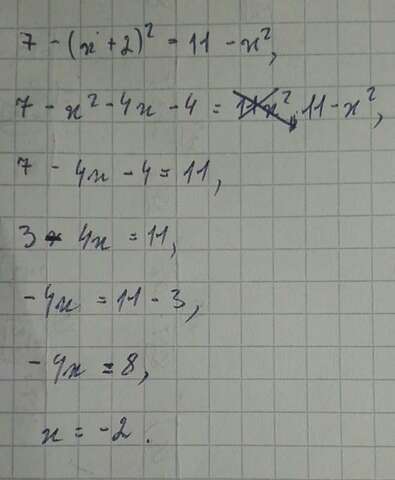 7 - (x + 2)² = 11 - x²,
7 - x² - 4x - 4 = 11 - x²,
7 - 4x - 4 = 11,
3 - 4x = 11,
-4x = 11 - 3,
-4x = 8,
x = -2.